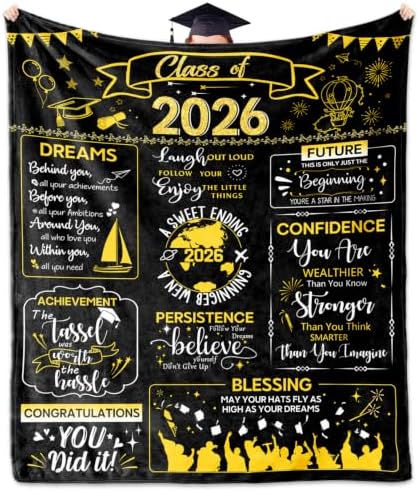 Class of
2026
DREAMS
Behind you,
all your achievements
Before you,
all your ambitions
Around You,
all who love you
Within you,
all you need
Laugh OUT LOUD
FOLLOW YOUR
Enjoy THE LITTLE
THINGS
FUTURE
THIS IS ONLY JUST THE
Beginning
YOU'RE A STAR IN THE MAKING
A SWEET ENDING
2026
A NEW BEGINNING
CONFIDENCE
You Are
WEALTHIER
Than You Know
Stronger
Than You Think
SMARTER
Than You Imagine
ACHIEVEMENT
The
Tassel
was
worth
the
hassle
PERSISTENCE
Follow Your
Dreams
believe
yourself
Don't Give Up
BLESSING
MAY YOUR HATS FLY AS
HIGH AS YOUR DREAMS
CONGRATULATIONS
YOU
Did it!